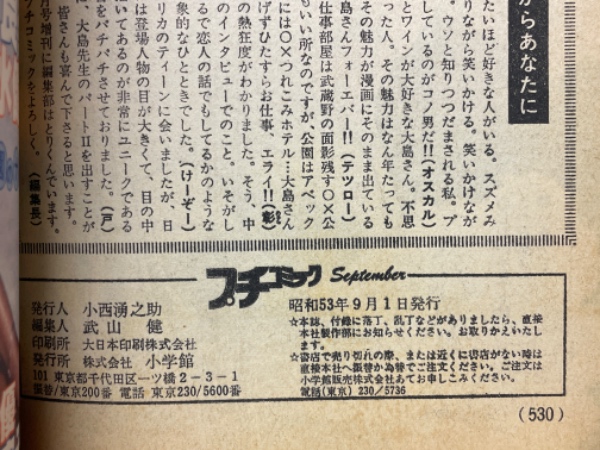 からあなたに
たいほど好きな人がいる。スズメみ
りながら笑いかける。笑いかけなが
ウソと知りつつだまされる私。プ
しているのがコノ男だ!!(オスカル)
とワインが大好きな大島さん。不思
った人。その魅力はなん年たっても
その魅力が漫画にそのまま出ている
島さんフォーエバー!!(テツロー)
仕事部屋は武蔵野の面影残す○×公
もいい所なのですが、公園はアベック
には○×つれこみホテル…大島さん
げずひたすらお仕事、エライ!!(彰)
の熱狂度がわかりました。そう、中
のインタビューでのこと。いそがし
るで恋人の話でもしてるかのような
象的なひとときでした。(けーぞー)
リカのティーンに会いましたが、日
は登場人物の目が大きくて、目の中
いてあるのが非常にユニークである
をパチパチさせておりました。(戸)
、大島先生のパートIIを出すことが
皆さんも喜んで下さると思います。
月号増刊に編集部はとりくんでいます。
チコミックをよろしく。(編集長)
プチコミック September
昭和53年9月1日発行
発行人 小西湧之助
編集人 武山 健
印刷所 大日本印刷株式会社
発行所 株式会社 小学館
101 東京都千代田区一ツ橋2-3-1
振替/東京200番 電話 東京230/5600番
☆本誌、付録に落丁、乱丁などがありましたら、直接
本社製作部にお知らせください。お取りかえいたし
ます。
☆書店で売り切れの際、または近くに書店がない時は
直接本社へ振替か為替でご注文ください。ご注文は
小学館販売株式会社あてお申しこみください。
電話(東京) 230/5736
(530)